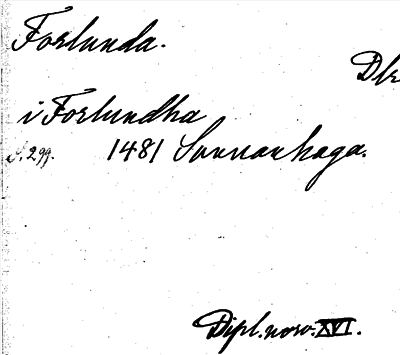 Forlunda.
i Forlundha
S. 299. 1481 Sunnanhaga.
Dipl. norv. XVI.